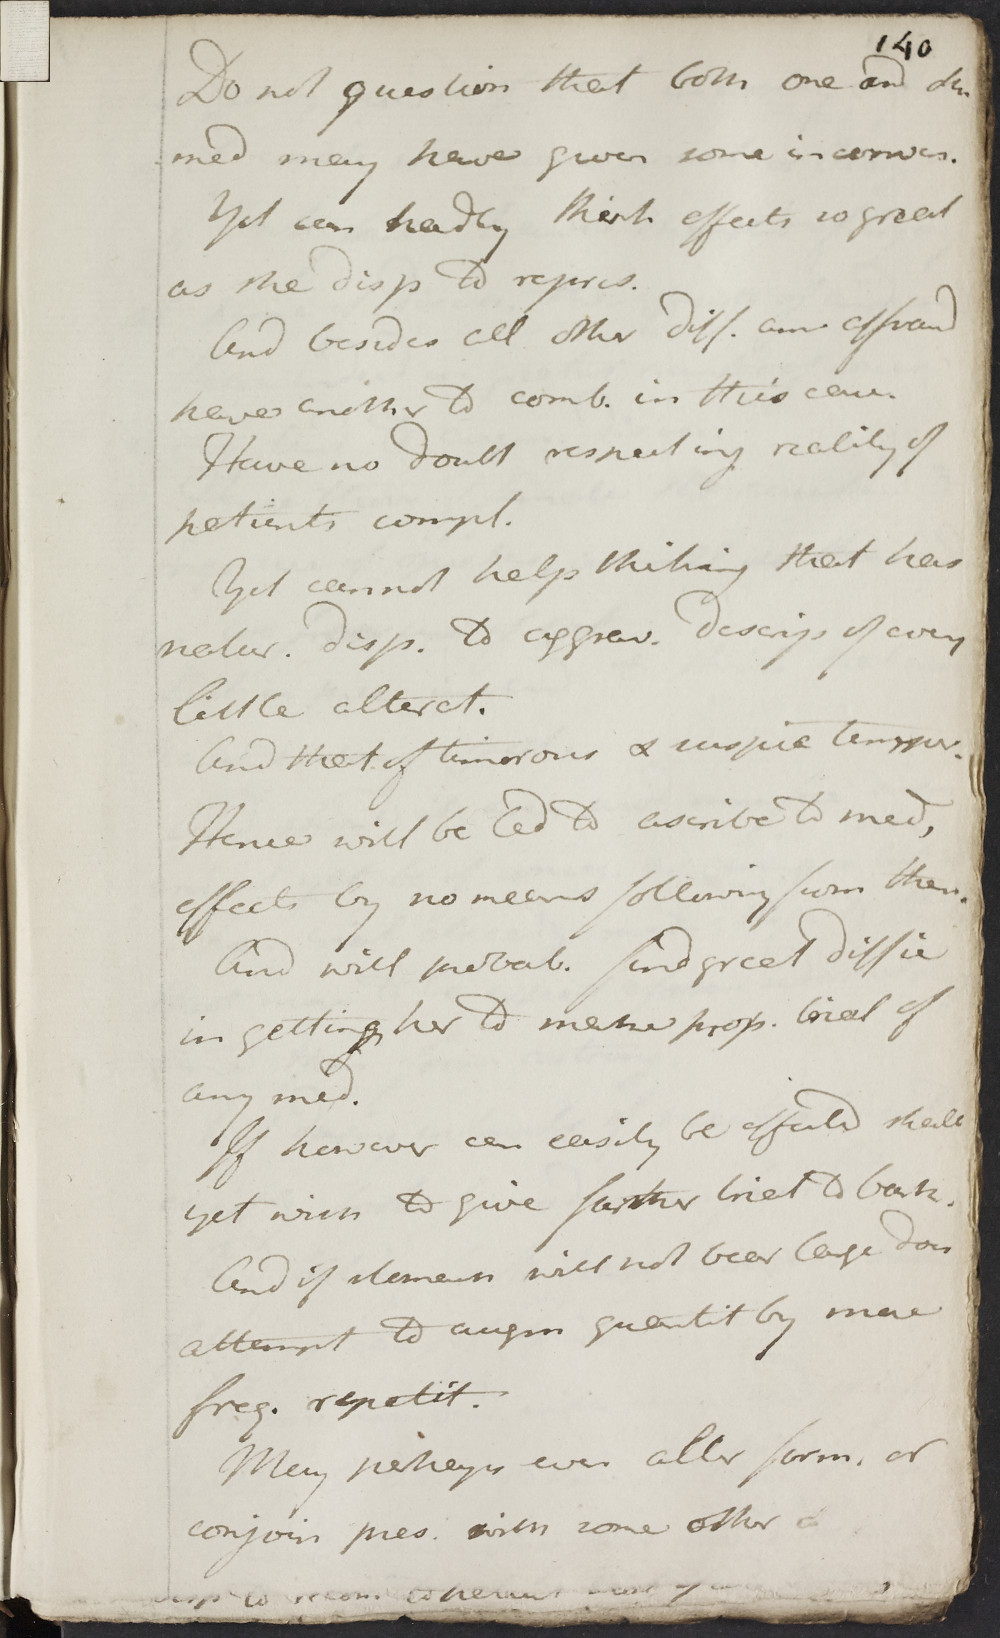 140
Do not question that both one and
med may have given some inconven.
Yet can hardly think effects so great
as she disp to repres.
And besides all other diff. am affraid
have another to comb. in this case.
Have no doubt respecting reality of
patients compl.
Yet cannot help thinking that has
natur. disp. to aggrav. descrip of every
little alterat.
And that of timorous & suspic temper.
Hence will be led to ascribe to med,
effects by no means following from them.
And will probab. find great diffic
in getting her to make prop. trial of
any med.
If however can easily be effected shall
yet wish to give farther trial to bark.
And if stomach will not bear large dose
attempt to augm quantit by more
freq. repetit.
May perhaps even alter form, or
conjoin pres. with some other